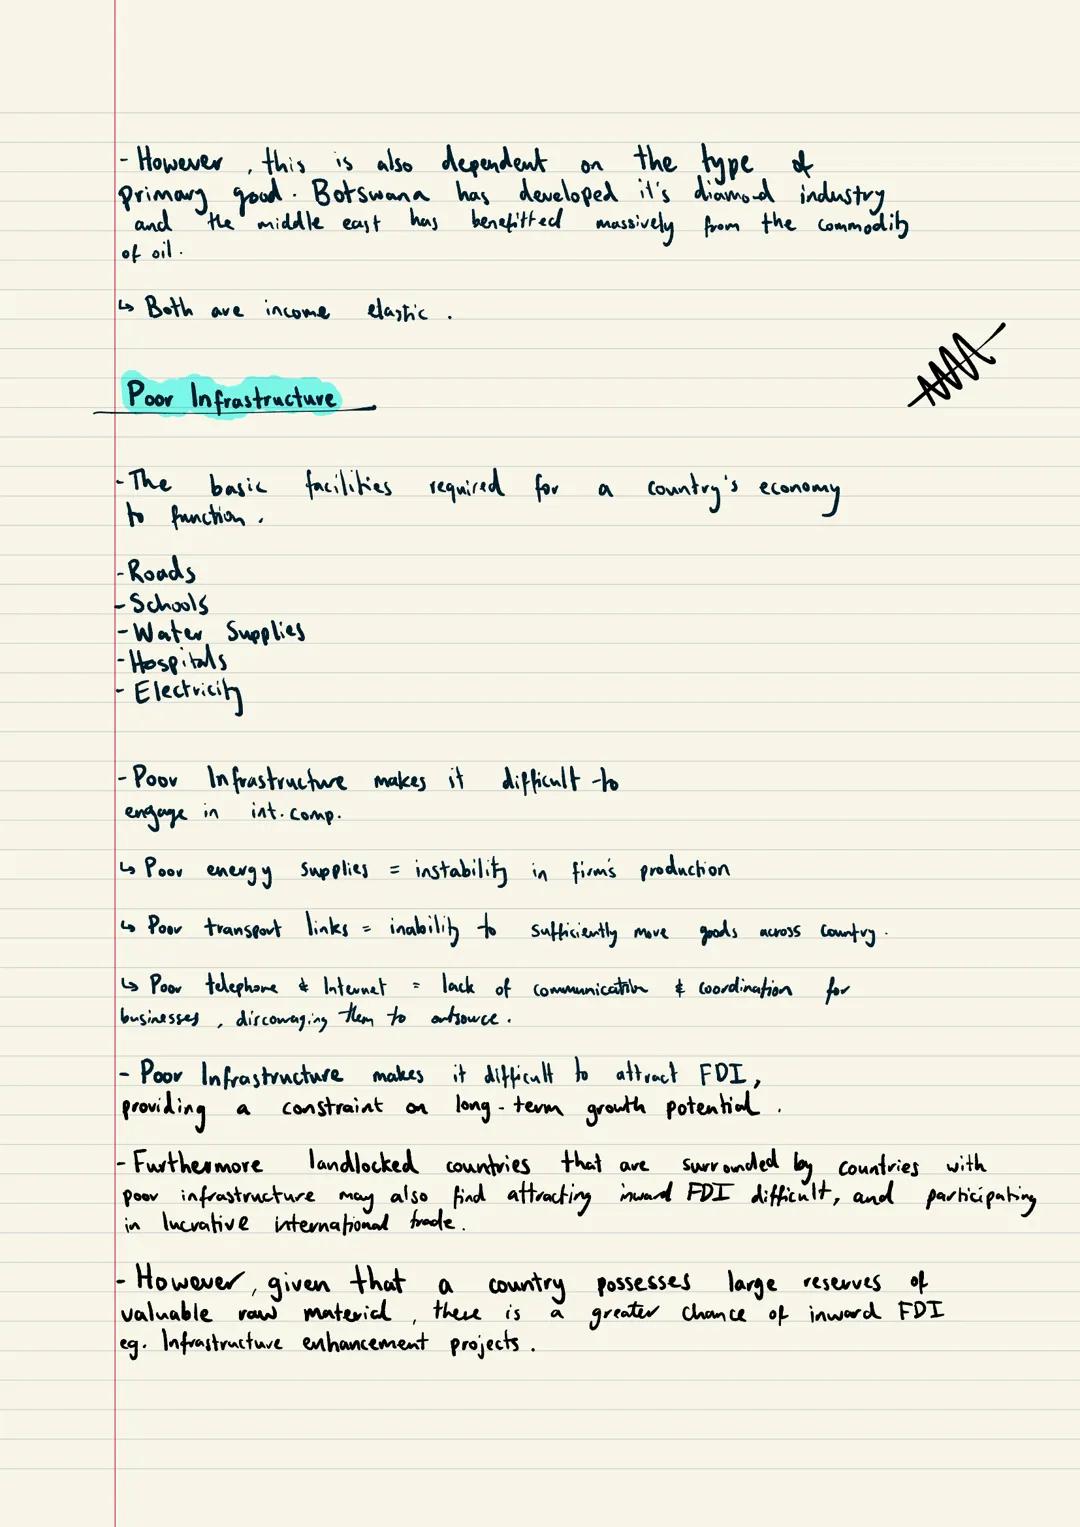 - However, this is also dependent on the type of
primary good. Botswana has developed it's diamond industry
and the middle east has benefitted massively from the commodity
of oil.
↳ Both are income elastic.
Poor Infrastructure
- The basic facilities required for a country's economy
to function.
- Roads
- Schools
- Water Supplies
- Hospitals
- Electricity
- Poor Infrastructure makes it difficult to
engage in int. comp.
↳ Poor energy supplies = instability in firm's production
↳ Poor transport links = inability to sufficiently move goods across country.
↳ Poor telephone & Internet = lack of communication & coordination for
businesses, discouraging them to outsource.
- Poor Infrastructure makes it difficult to attract FDI,
providing a constraint on long-term growth potential.
- Furthermore landlocked countries that are surrounded by countries with
poor infrastructure may also find attracting inward FDI difficult, and participating
in lucrative international trade.
- However, given that a country possesses large reserves of
valuable raw material, there is a greater chance of inward FDI
eg. Infrastructure enhancement projects.